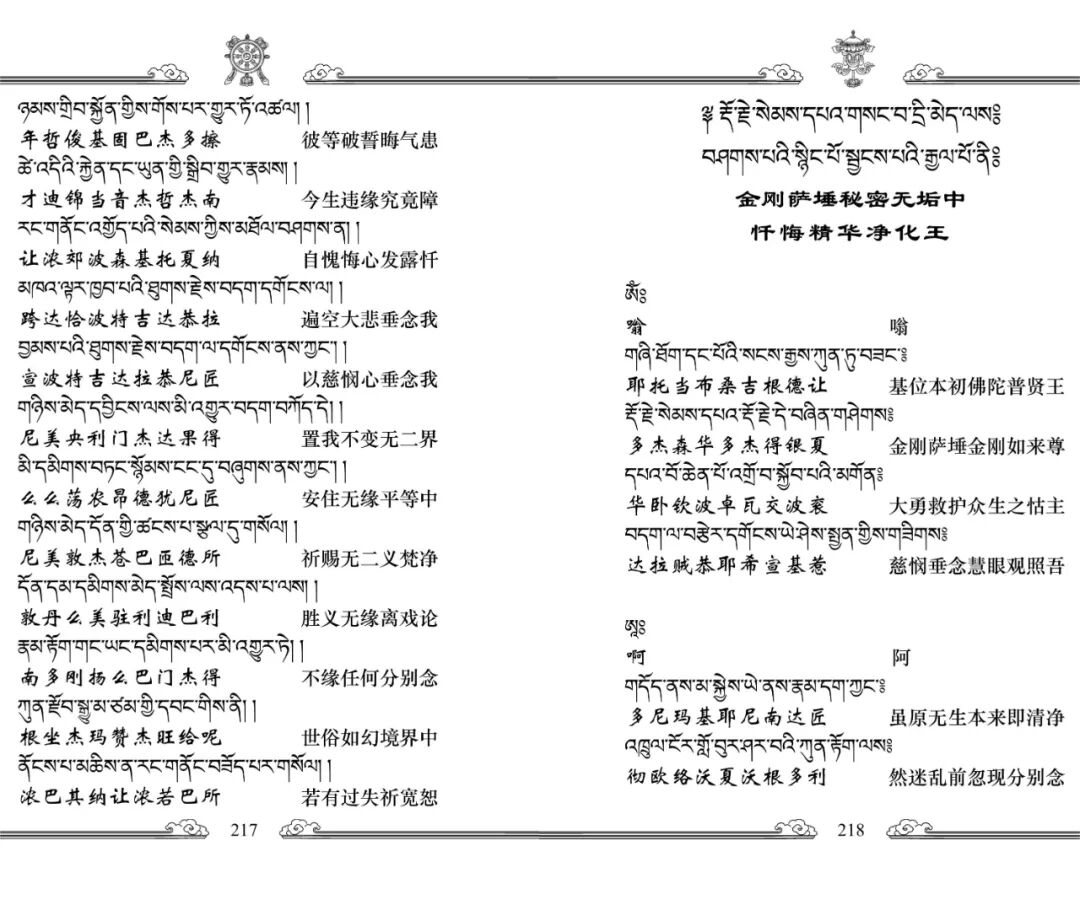 ཉམས་གྲིབ་སྐྱོན་གྱིས་གོས་པར་གྱུར་ཏོ་འཚལ། །
年哲俊基固巴杰多擦 彼等破誓晦气患
ཚེ་འདིའི་རྐྱེན་དང་ཡུན་གྱི་སྒྲིབ་གྱུར་རྣམས། །
才迪锦当音杰哲杰南 今生违缘究竟障
རང་གནོང་འགྱོད་པའི་སེམས་ཀྱིས་མཐོལ་བཤགས་ན། །
让浓郊波森基托夏纳 自愧悔心发露忏
མཁའ་ལྟར་ཁྱབ་པའི་ཐུགས་རྗེས་བདག་དགོངས་ལ། །
跨达恰波特吉达恭拉 遍空大悲垂念我
བྱམས་པའི་ཐུགས་རྗེས་བདག་ལ་དགོངས་ནས་ཀྱང་། །
宣波特吉达拉恭尼匠 以慈悯心垂念我
གཉིས་མེད་དབྱིངས་ལས་མི་འགྱུར་བདག་བཀོད་དེ། །
尼美央利门杰达果得 置我不变无二界
མི་དམིགས་བཏང་སྙོམས་ངང་དུ་བཞུགས་ནས་ཀྱང་། །
么么荡农昂德犹尼匠 安住无缘平等中
གཉིས་མེད་དོན་གྱི་ཚངས་པ་སྩལ་དུ་གསོལ། །
尼美敦杰苍巴匝德所 祈赐无二义梵净
དོན་དམ་དམིགས་མེད་སྤྲོས་ལས་འདས་པ་ལས། །
敦丹么美驻利迪巴利 胜义无缘离戏论
རྣམ་རྟོག་གང་ཡང་དམིགས་པར་མི་འགྱུར་ཏེ། །
南多刚扬么巴门杰得 不缘任何分别念
ཀུན་རྫོབ་སྒྱུ་མ་ཙམ་གྱི་དབང་གིས་ནི། །
根坐杰玛赞杰旺给呢 世俗如幻境界中
ནོངས་པ་མཆིས་ན་རང་གནོང་བཟོད་པར་གསོལ། །
浓巴其纳让浓若巴所 若有过失祈宽恕
217
༈ རྡོ་རྗེ་སེམས་དཔའ་གསང་བ་དྲི་མེད་ལས༔
བཤགས་པའི་སྙིང་པོ་སྦྱངས་པའི་རྒྱལ་པོ་ནི༔
金刚萨埵秘密无垢中
忏悔精华净化王
ཨོཾ༔
嗡 嗡
གཞི་ཐོག་དང་པོའི་སངས་རྒྱས་ཀུན་ཏུ་བཟང་༔
耶托当布桑吉根德让 基位本初佛陀普贤王
རྡོ་རྗེ་སེམས་དཔའ་རྡོ་རྗེ་དེ་བཞིན་གཤེགས༔
多杰森华多杰得银夏 金刚萨埵金刚如来尊
དཔའ་བོ་ཆེན་པོ་འགྲོ་བ་སྐྱོབ་པའི་མགོན༔
华卧钦波卓瓦交波衮 大勇救护众生之怙主
བདག་ལ་བརྩེར་དགོངས་ཡེ་ཤེས་སྤྱན་གྱིས་གཟིགས༔
达拉贼恭耶希宣基惹 慈悯垂念慧眼观照吾
ཨཱ༔
啊 阿
གདོད་ནས་མ་སྐྱེས་ཡེ་ནས་རྣམ་དག་ཀྱང་༔
多尼玛基耶尼南达匠 虽原无生本来即清净
འཁྲུལ་ངོར་གློ་བུར་ཤར་བའི་ཀུན་རྟོག་ལས༔
彻欧络沃夏沃根多利 然迷乱前忽现分别念
218